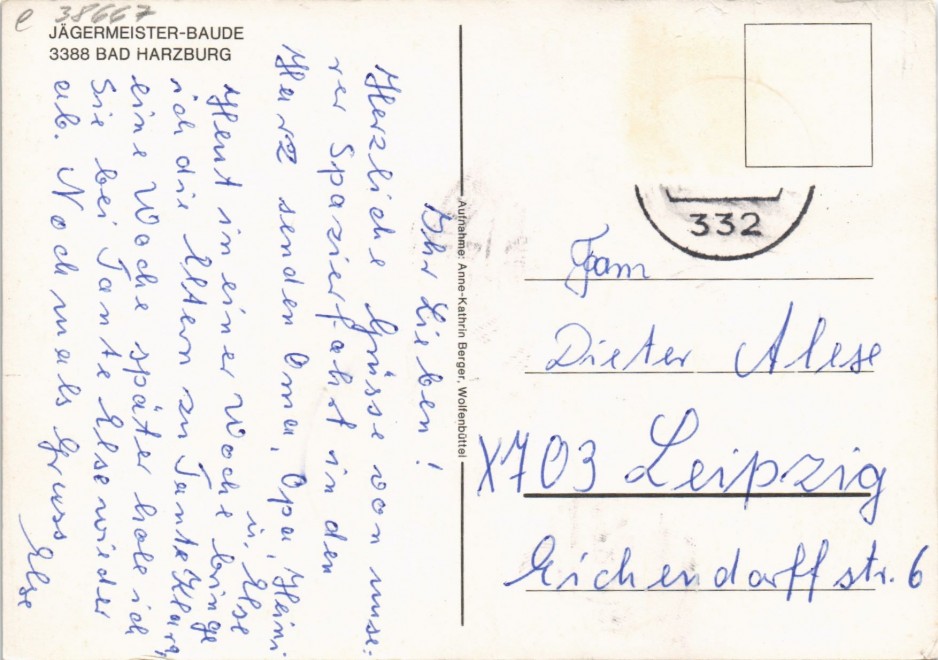 e 38667
JÄGERMEISTER-BAUDE
3388 BAD HARZBURG
Ihr Lieben!
Herzliche Grüsse von unse-
rer Spazierfahrt in den
Harz senden Oma, Opa, Heini
u. Else
Heut in einer Woche bringe
ich die Eltern zu Tante Klara,
eine Woche später hole ich
Sie bei Tante Else wieder
ab. Nochmals Gruss
Else
Aufnahme: Anne-Kathrin Berger, Wolfenbüttel
332
Fam
Dieter Alese
X703 Leipzig
Eichendorffstr. 6